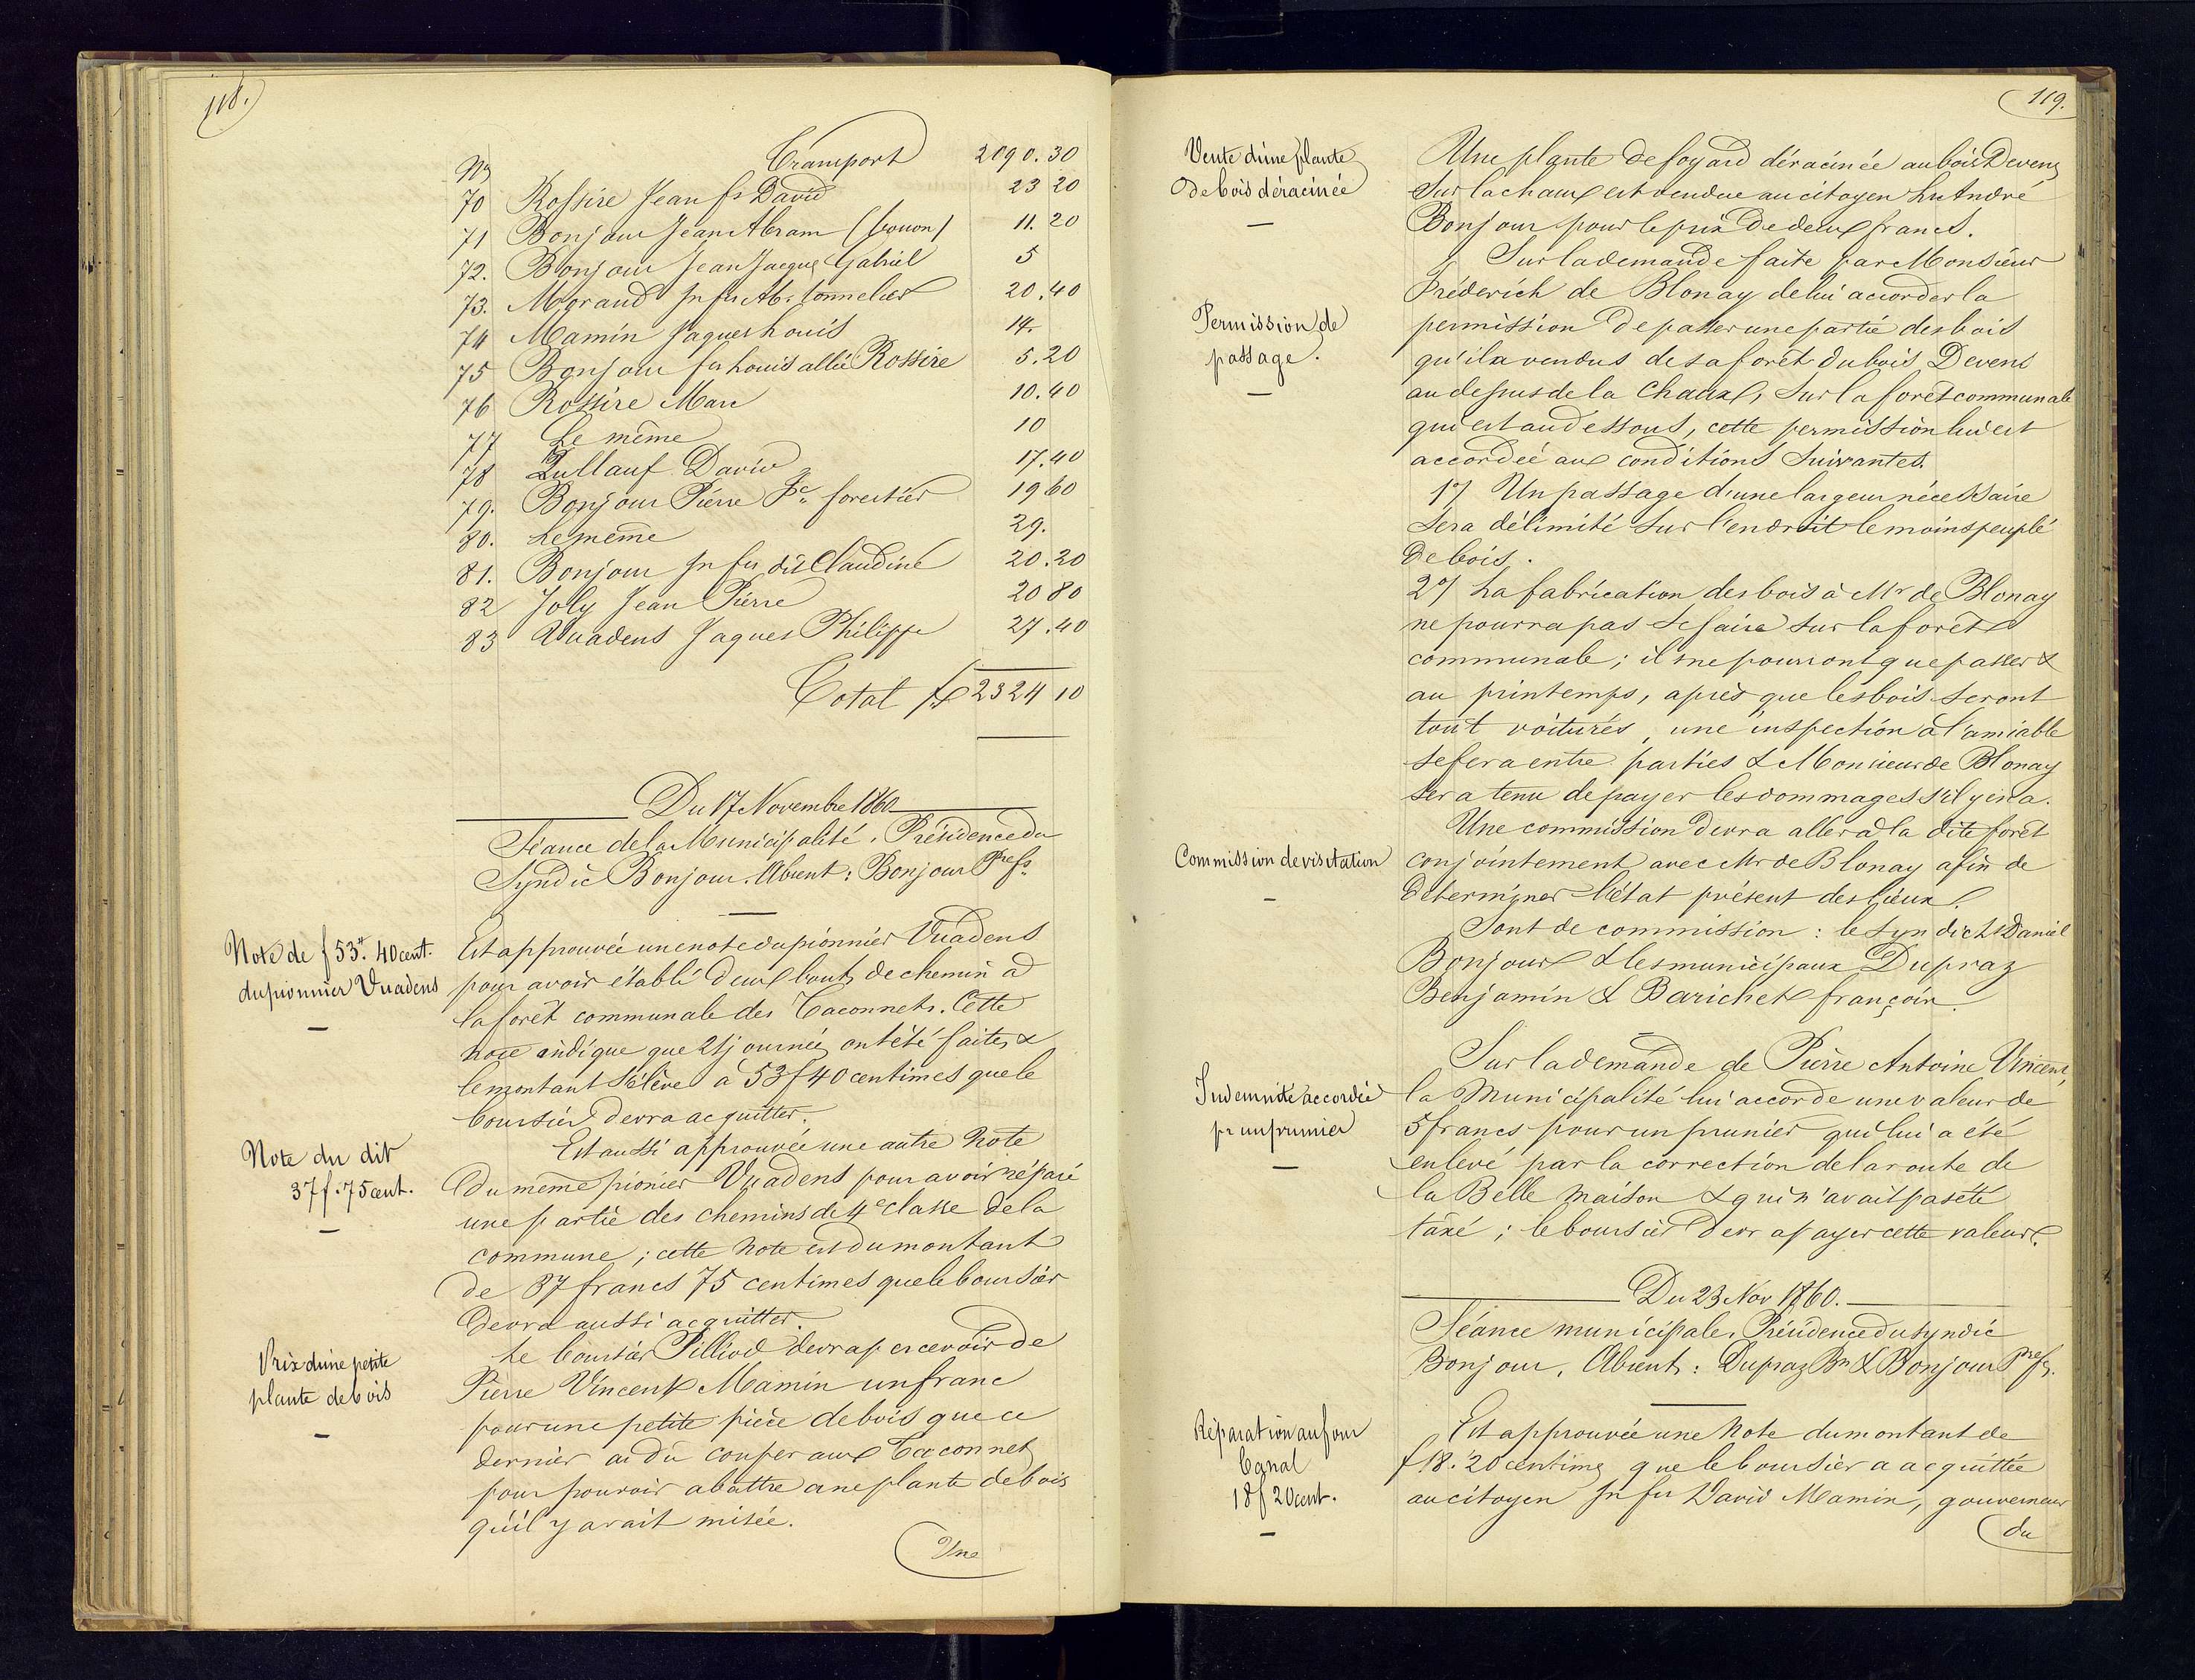 118.
Transport 2090.30
Nos
70 Rossire Jean fs David 23 20
71 Bonjour Jean Abram (bonon) 11.20
72. Bonjour Jean Jacques Gabriel 5
73. Morand Jn fu Abr tonnelier 20.40
74 Mamin Jaques Louis 14.
75 Bonjour fu Louis allié Rossire 5.20
76 Rossire Marc 10.40
77 Le même 10
78 Zullauf David 17.40
79. Bonjour Pierre Fc forestier 19 60
80. Le même 29.
81. Bonjour Jn fu dit Claudine 20.20
82 Joly Jean Pierre 20 80
83 Vuadens Jaques Philippe 27.40
Total fs 2324 10
Du 17 Novembre 1860
Séance de la Municipalité. Présidence du
Syndic Bonjour. Absent: Bonjour Prefs.
Note de f 53. 40 cent.
du pionnier Vuadens
Est approuvée une note du pionnier Vuadens
pour avoir établi deux bouts de chemin à
la forêt communale des Taconnets. Cette
note indique que 21 journées ont été faites &
le montant s'élève à 53 f 40 centimes que le
boursier devra acquitter.
Note du dit
37 f. 75 cent.
Est aussi approuvée une autre note
du même pionier Vuadens pour avoir réparé
une partie des chemins de 4e classe de la
commune; cette note est du montant
de 37 francs 75 centimes que le boursier
devra aussi acquitter.
Prix d'une petite
plante de bois
Le boursier Pilliod devra percevoir de
Pierre Vincent Mamin un franc
pour une petite pièce de bois que ce
dernier a dû couper aux Taconnets
pour pouvoir abattre une plante de bois
qu'il y avait misée.
Une
119.
Vente d'une plante
de bois déracinée
Une plante de foyard déracinée au bois Devens
sur la chaux est vendue au citoyen Ls André
Bonjour pour le prix de deux francs.
Permission de
passage.
Sur la demande faite par Monsieur
Fréderich de Blonay de lui accorder la
permission de passer une partie des bois
qu'il a vendus de sa forêt du bois Devens
au dessus de la Chaux, sur la forêt communale
qui est au dessous, cette permission lui est
accordée aux conditions suivantes.
1°/ Un passage d'une largeur nécessaire
sera délimité sur l'endroit le moins peuplé
de bois.
2°/ La fabrication des bois à Mr de Blonay
ne pourra pas se faire sur la forêt
communale; il ne pourront que passer &
au printemps, après que les bois seront
tout voiturés, une inspection à l'amiable
se fera entre parties & Monsieur de Blonay
sera tenu de payer les dommages s'il y en a.
Commission de visitation
Une commission devra aller à la dite forêt
conjointement avec Mr de Blonay afin de
déterminer l'état présent des lieux.
Sont de commission: le syndic Ls Daniel
Bonjour & les municipaux Dupraz
Benjamin & Barichet françois.
Indemnité accordée
pr un prunier
Sur la demande de Pierre Antoine Vincent,
la Municipalité lui accorde une valeur de
5 francs pour un prunier qui lui a été
enlevé par la correction de la route de
la Belle maison & qui n'avait pas été
taxé; le boursier devra payer cette valeur.
Du 23 Nov 1860.
Séance municipale. Présidence du syndic
Bonjour. Absents: Dupraz Bn & Bonjour Prefs.
Réparation au four
banal
18 f 20 cent.
Est approuvée une note du montant de
f 18. 20 centimes que le boursier a acquittée
au citoyen Jn fu David Mamin, gouverneur
du